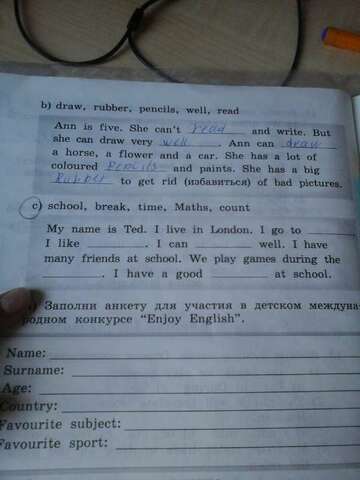 b) draw, rubber, pencils, well, read
Ann is five. She can't read and write. But
she can draw very well. Ann can draw
a horse, a flower and a car. She has a lot of
coloured pencils and paints. She has a big
Rubber to get rid (избавиться) of bad pictures.
c) school, break, time, Maths, count
My name is Ted. I live in London. I go to ________
I like ________. I can ________ well. I have
many friends at school. We play games during the
________. I have a good ________ at school.
Заполни анкету для участия в детском междуна-
родном конкурсе “Enjoy English”.
Name: ________
Surname: ________
Age: ________
Country: ________
Favourite subject: ________
Favourite sport: ________